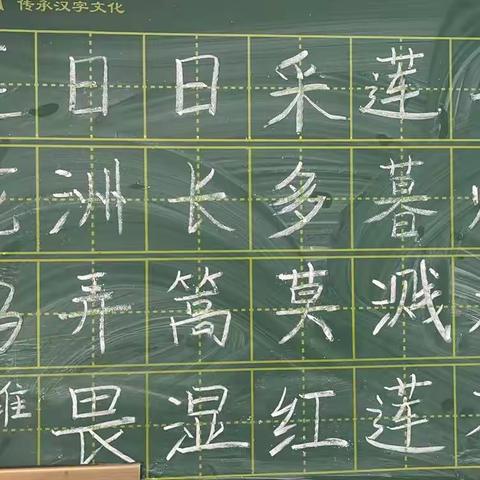 传承汉字文化
日日采莲
洲长多暮
弄篙莫溅
畏湿红莲